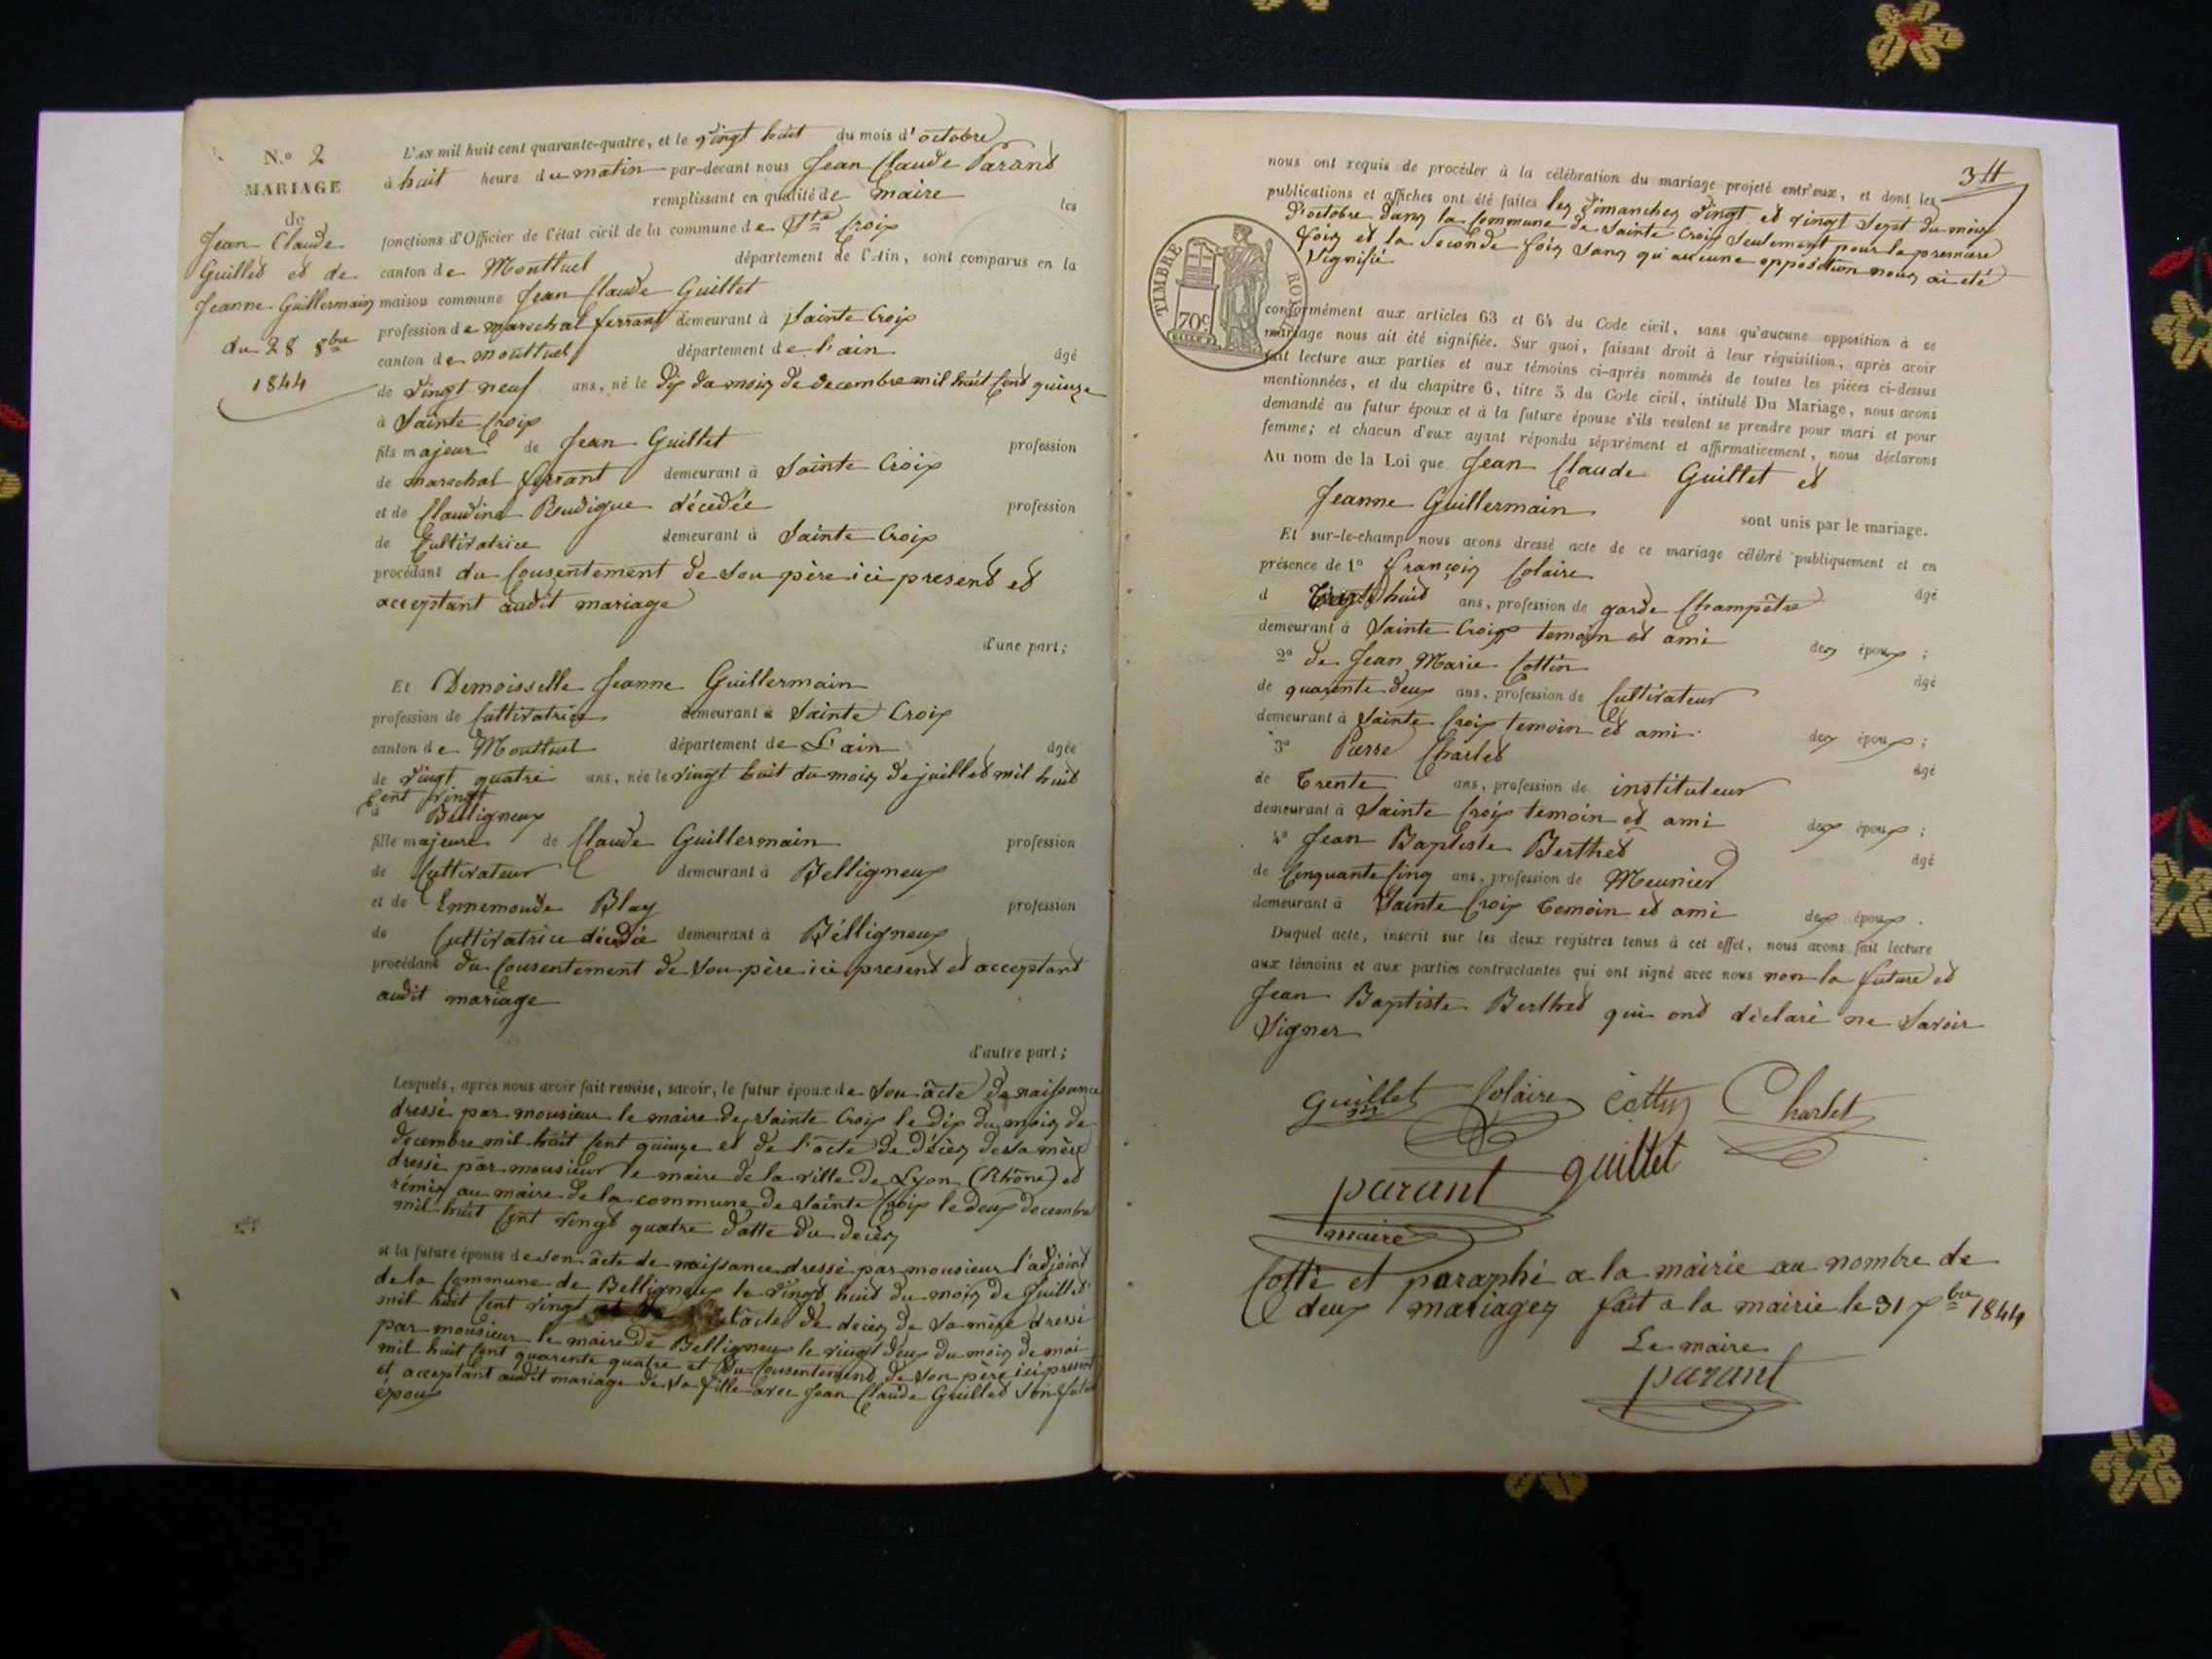 N.º 2
MARIAGE
de
Jean Claude
Guilled et de
Jeanne Guillermain
du 28 8bre
1844
L'an mil huit cent quarante-quatre, et le vingt huit du mois d'octobre
à huit heure du matin par-devant nous Jean Claude Parand
remplissant en qualité de maire les
fonctions d'Officier de l'état civil de la commune de Ste Croix
canton de Montluel département de l'Ain, sont comparus en la
maison commune Jean Claude Guillet
profession de mareschal ferrant demeurant à Sainte Croix
canton de montluel département de l'ain âgé
de vingt neuf ans, né le dix du mois de decembre mil huit cent quinze
à Sainte Croix
fils majeur de Jean Guillet profession
de mareschal ferrant demeurant à Sainte Croix
et de Claudine décédée profession
de Cultivatrice demeurant à Sainte Croix
procédant du Consentement de son père ici present et
acceptant audit mariage
d'une part;
Et Demoisselle Jeanne Guillermain
profession de Cultivatrice demeurant à Sainte Croix
canton de Montluel département de L'ain âgée
de vingt quatre ans, née le vingt huit du mois de juillet mil huit
Cent vingt
à Belligneux
fille majeure de Claude Guillermain profession
de Cultivateur demeurant à Belligneux
et de Ennemonde Blay profession
de Cultivatrice décédée demeurant à Bélligneux
procédant du Consentement de son père ici present et acceptant
audit mariage
d'autre part;
Lesquels, après nous avoir fait remise, savoir, le futur époux de son acte de naissance
dressé par monsieur le maire de Sainte Croix le dix du mois de
decembre mil huit cent quinze et de l'acte de décès de sa mère
dressé par monsieur le maire de la ville de Lyon (Rhône) et
rémis au maire de la commune de Sainte Croix le deux decembre
mil huit cent vingt quatre datte du decès
et la future épouse de son acte de naissance dressé par monsieur l'adjoint
de la Commune de Belligneux le vingt huit du mois de Juillet
mil huit cent vingt l'acte de decès de sa mère dressé
par monsieur le maire de Belligneux le vingt deux du mois de mai
mil huit cent quarente quatre et du Consentement de son père ici present
et acceptant audit mariage de sa fille avec Jean Claude Guilled son futur
époux
nous ont requis de procéder à la célébration du mariage projeté entr'eux, et dont les
publications et affiches ont été faites les Dimanches vingt et vingt sept du mois
d'octobre dans la Commune de Sainte Croix Seulement pour la premiere
fois et la Seconde fois sans qu'aucune opposition nous ai eté
signifié
TIMBRE ROYAL
70c
conformément aux articles 63 et 64 du Code civil, sans qu'aucune opposition à ce
mariage nous ait été signifiée. Sur quoi, faisant droit à leur réquisition, après avoir
fait lecture aux parties et aux témoins ci-après nommés de toutes les pièces ci-dessus
mentionnées, et du chapitre 6, titre 5 du Code civil, intitulé Du Mariage, nous avons
demandé au futur époux et à la future épouse s'ils veulent se prendre pour mari et pour
femme; et chacun d'eux ayant répondu séparément et affirmativement, nous déclarons
Au nom de la Loi que Jean Claude Guillet et
Jeanne Guillermain
sont unis par le mariage.
Et sur-le-champ nous avons dressé acte de ce mariage célébré publiquement et en
présence de 1º François Colaire
âgé
d huit ans, profession de garde Champêtre
demeurant à Sainte Croix temoin et ami des époux;
2º de Jean Marie Cottin âgé
de quarente deux ans, profession de Cultivateur
demeurant à Sainte Croix temoin et ami des époux;
3º Pierre Charled âgé
de Trente ans, profession de instituteur
demeurant à Sainte Croix temoin et ami des époux;
4º Jean Baptiste Berthed âgé
de Cinquante Cinq ans, profession de Meunier
demeurant à Sainte Croix temoin et ami des époux.
Duquel acte, inscrit sur les deux registres tenus à cet effet, nous avons fait lecture
aux témoins et aux parties contractantes qui ont signé avec nous non la future et
Jean Baptiste Berthed qui ont déclaré ne savoir
signer
Guillet Colaire Cottin Charlet
parant guillet
maire
Cotté et paraphé a la mairie au nombre de
deux mariages fait a la mairie le 31 Xbre 1844
Le maire
parant